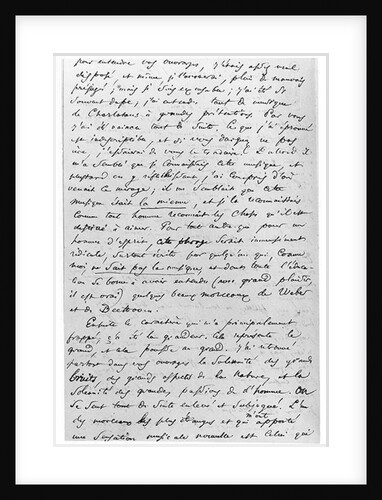 pour entendre vos ouvrages, j'étais assez mal
disposé et même je l'avouerai, plein de mauvais
préjugés j'étais si j'ai été si
souvent dupe; j'ai entendu tant de musique
de Charlatans à grandes prétentions. Par vous
j'ai été vaincu tout de suite. Ce que j'ai éprouvé
est indescriptible, et si vous daignez ne pas
rire, j'essaierai de vous le traduire. D'abord il
m'a semblé que je connaissais cette musique, et
plus tard en y réfléchissant, j'ai compris d'où
venait le mirage; il me semblait que cette
musique était la mienne, et je la reconnaissais
comme tout homme reconnaît les choses qu'il est
destiné à aimer. Pour tout autre que pour un
homme d'esprit, cette phrase serait immensément
ridicule, surtout écrite par quelqu'un qui, comme
moi ne sait pas la musique, et dont toute l'éduca-
tion se borne à avoir entendu (avec grand plaisir,
il est vrai) quelques beaux morceaux de Weber
et de Beethoven.
Ensuite le caractère qui m'a principalement
frappé, ç'a été la grandeur. Cela représente le
grand, et cela pousse au grand. J'ai retrouvé
partout dans vos ouvrages la solennité des grands
bruits, des grands aspects de la Nature, et la
solennité des grandes passions de l'homme. On
se sent tout de suite enlevé et subjugué. L'un
des morceaux les plus étranges et qui m'ont apporté
une sensation musicale nouvelle est celui qui